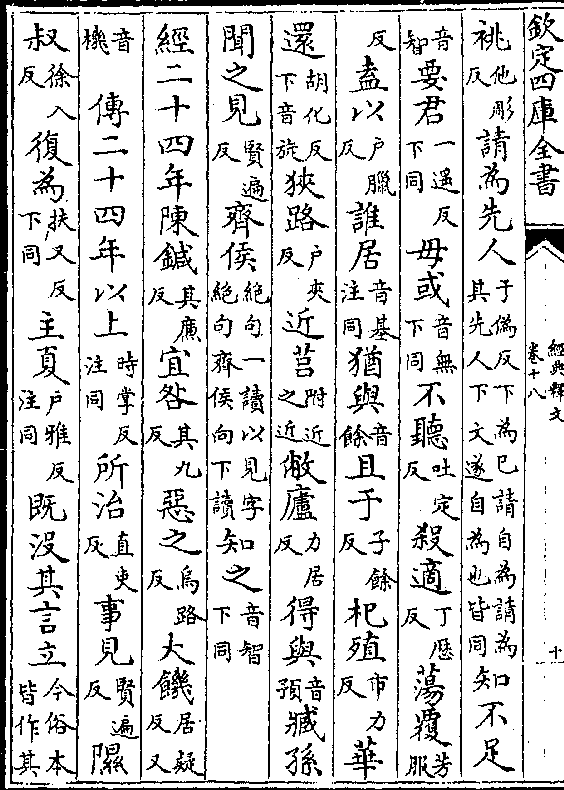 欽定四庫全書
經典釋文
卷十八
十
祧他彫反請為先人于偽反下為已請自為請為其先人下文遂自為也皆同知不足
音智要君一遥反下同毋或音無下同不聽吐定反殺適丁歷反蕩覆芳服
反盍以户臘反誰居音基注同猶與音餘且于子餘反杞殖市力反華
還胡化反下音旋狹路户夾反近莒附近之近敝廬力居反得與音預臧孫
聞之見賢遍反齊侯絶句一讀以見字絶句齊侯向下讀知之音智下同
經二十四年陳鍼其廉反宜咎其九反惡之烏路反大饑居疑反又
音機 傳二十四年以上時掌反注同所治直吏反事見賢遍反隰
叔徐入反復為扶又反下同主夏户雅反注同既没其言立今俗本皆作其